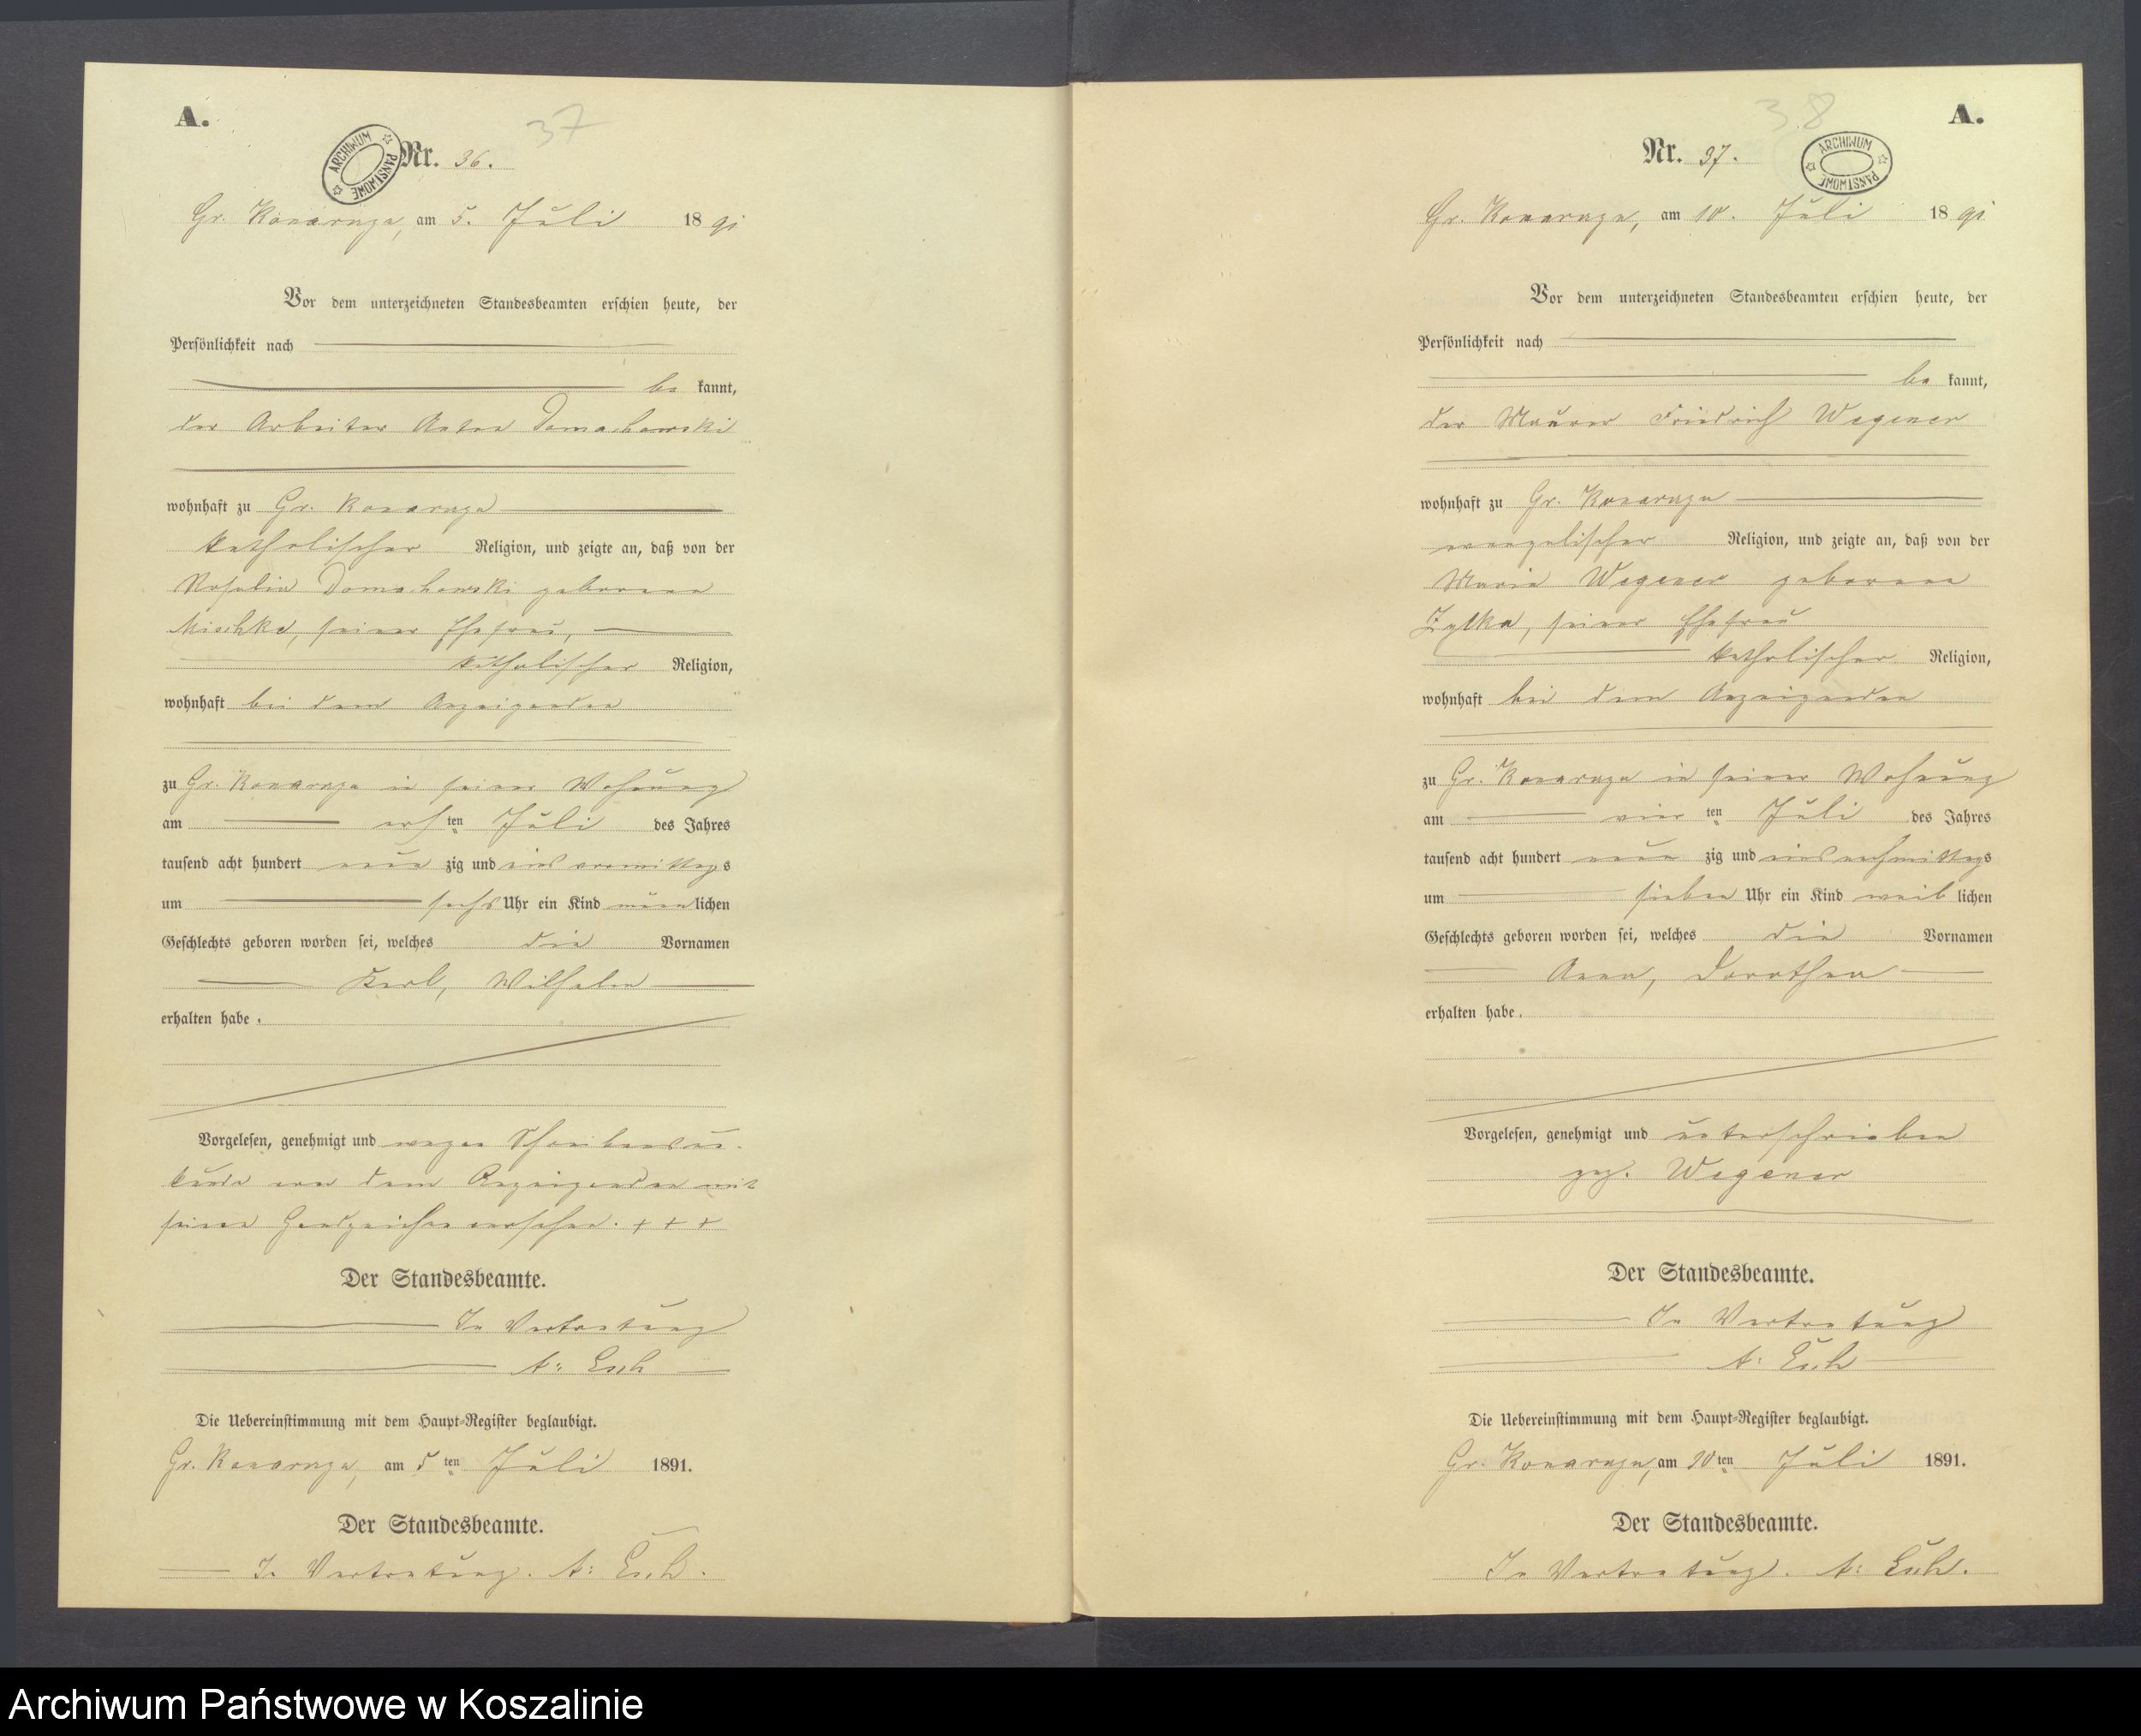 A.
37
ARCHIWUM PAŃSTWOWE
Nr. 36.
Gr. Konarzyn, am 5. Juli 1891
Vor dem unterzeichneten Standesbeamten erschien heute, der
Persönlichkeit nach
be kannt,
der Arbeiter Anton Domachowski
wohnhaft zu Gr. Konarzyn
katholischer Religion, und zeigte an, daß von der
Rosalia Domachowski geborene
Mischke, seiner Ehefrau,
katholischer Religion,
wohnhaft bei dem Anzeigenden
zu Gr. Konarzyn in seiner Wohnung
am ersten Juli des Jahres
tausend acht hundert neun zig und eins vormittags
um sechs Uhr ein Kind männlichen
Geschlechts geboren worden sei, welches die Vornamen
Karl, Wilhelm
erhalten habe.
Vorgelesen, genehmigt und wegen Schreibensun-
kunde von dem Anzeigenden mit
seinen Handzeichen versehen. + + +
Der Standesbeamte.
In Vertretung
A:
Die Uebereinstimmung mit dem Haupt-Register beglaubigt.
Gr. Konarzyn, am 5ten Juli 1891.
Der Standesbeamte.
In Vertretung. A:
A.
38
Nr. 37.
ARCHIWUM PAŃSTWOWE
Gr. Konarzyn, am 10. Juli 1891
Vor dem unterzeichneten Standesbeamten erschien heute, der
Persönlichkeit nach
be kannt,
der Maurer Friedrich Wegener
wohnhaft zu Gr. Konarzyn
evangelischer Religion, und zeigte an, daß von der
Maria Wegener geborene
Zytka, seiner Ehefrau
katholischer Religion,
wohnhaft bei dem Anzeigenden
zu Gr. Konarzyn in seiner Wohnung
am vierten Juli des Jahres
tausend acht hundert neun zig und eins nachmittags
um sieben Uhr ein Kind weiblichen
Geschlechts geboren worden sei, welches die Vornamen
Anna, Dorothea
erhalten habe.
Vorgelesen, genehmigt und unterschrieben
gez. Wegener
Der Standesbeamte.
In Vertretung
A:
Die Uebereinstimmung mit dem Haupt-Register beglaubigt.
Gr. Konarzyn, am 10ten Juli 1891.
Der Standesbeamte.
In Vertretung. A:
Archiwum Państwowe w Koszalinie